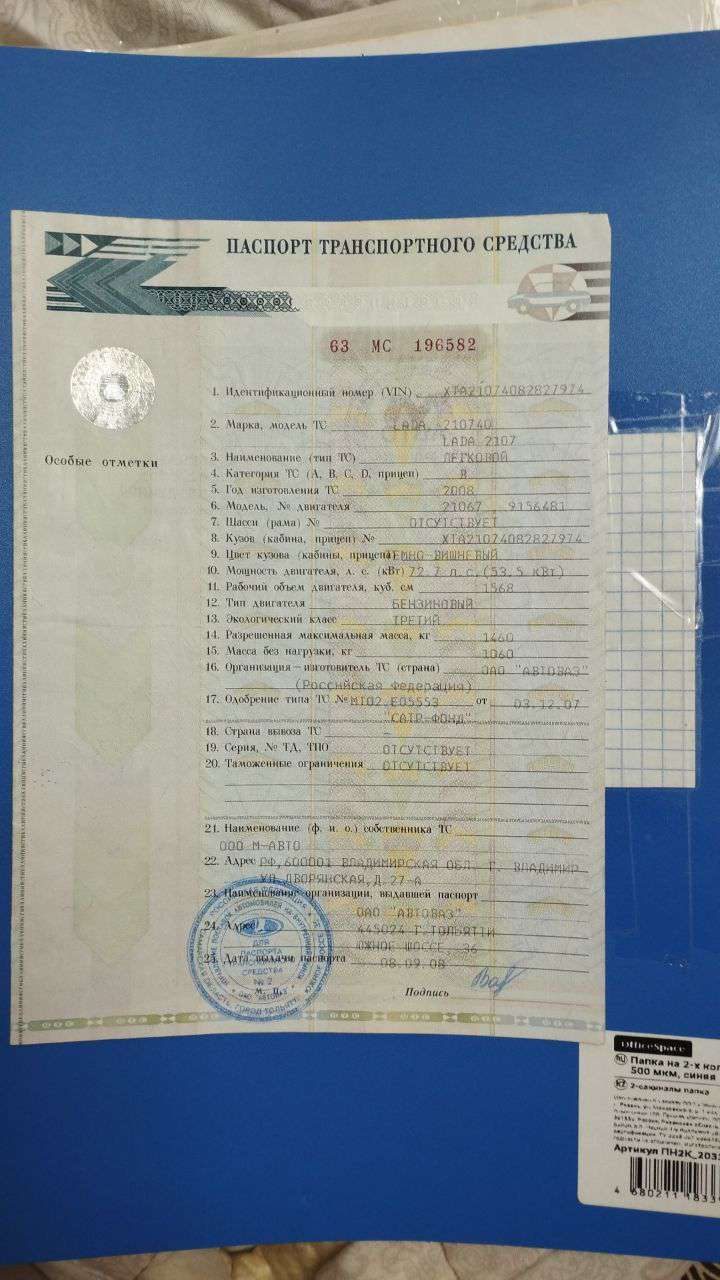 ПАСПОРТ ТРАНСПОРТНОГО СРЕДСТВА
63 МС 196582
Особые отметки
1. Идентификационный номер (VIN) XTA21074082827974
2. Марка, модель ТС LADA, 210740
LADA 2107
3. Наименование (тип ТС) ЛЕГКОВОЙ
4. Категория ТС (А, В, С, D, прицеп) В
5. Год изготовления ТС 2008
6. Модель, № двигателя 21067 , 9156481
7. Шасси (рама) № ОТСУТСТВУЕТ
8. Кузов (кабина, прицеп) № XTA21074082827974
9. Цвет кузова (кабины, прицепа) ТЕМНО-ВИШНЕВЫЙ
10. Мощность двигателя, л. с. (кВт) 72.7 л.с.(53.5 кВт)
11. Рабочий объем двигателя, куб. см 1568
12. Тип двигателя БЕНЗИНОВЫЙ
13. Экологический класс ТРЕТИЙ
14. Разрешенная максимальная масса, кг 1460
15. Масса без нагрузки, кг 1060
16. Организация – изготовитель ТС (страна) ОАО "АВТОВАЗ"
(Российская Федерация)
17. Одобрение типа ТС № МТ02.Е05553 от 03.12.07
"САТР-ФОНД"
18. Страна вывоза ТС –
19. Серия, № ТД, ТПО ОТСУТСТВУЕТ
20. Таможенные ограничения ОТСУТСТВУЕТ
21. Наименование (ф. и. о.) собственника ТС
ООО М-АВТО
22. Адрес РФ,600001 ВЛАДИМИРСКАЯ ОБЛ. Г. ВЛАДИМИР
УЛ.ДВОРЯНСКАЯ,Д.27-А
23. Наименование организации, выдавшей паспорт
ОАО "АВТОВАЗ"
24. Адрес 445024 Г.ТОЛЬЯТТИ
ЮЖНОЕ ШОССЕ, 36
25. Дата выдачи паспорта 08.09.08
М. П. Подпись
ДЛЯ
ПАСПОРТА
СРЕДСТВА
№ 2
ОАО "АВТОВАЗ"
OfficeSpace
RU Папка на 2-х кол
500 мкм, синяя
KZ 2-сақиналы папка
Артикул ПН2К_203
4 680211 1833